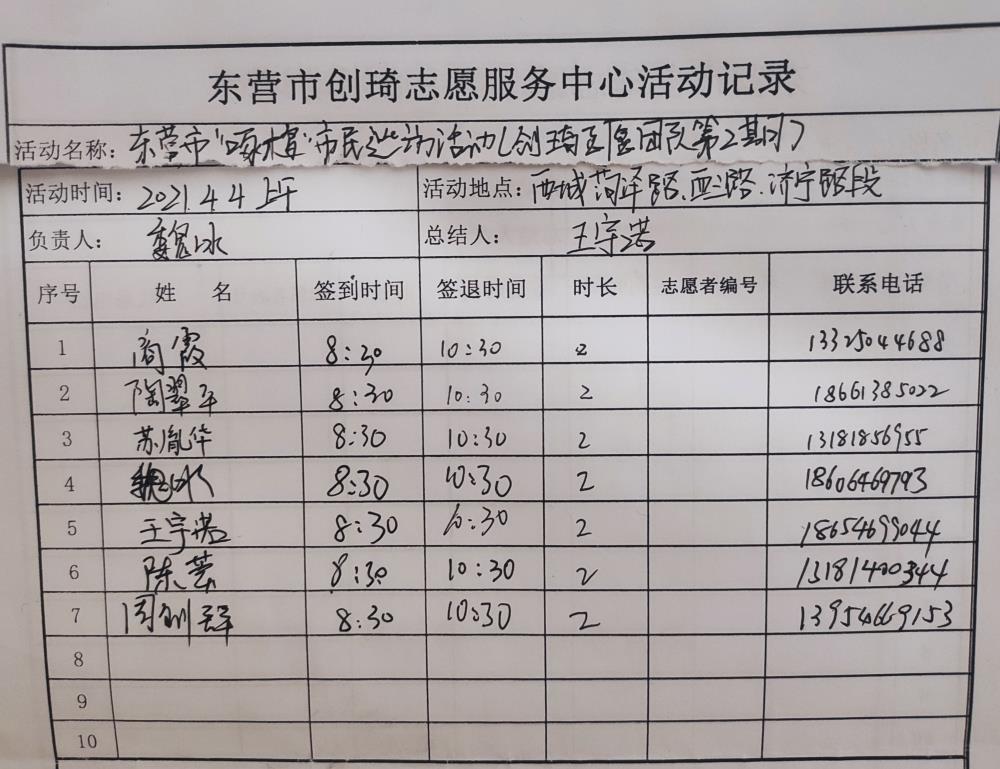 东营市创琦志愿服务中心活动记录
活动名称：东营市"啄木鸟"市民巡访活动(创琦志愿团队第2期)
活动时间：2021.4.4上午 活动地点：西城菏泽路、西三路、济宁路段
负责人：魏冰 总结人：王宇诺
序号 姓 名 签到时间 签退时间 时长 志愿者编号 联系电话
1 商霞 8:30 10:30 2 13325044688
2 陶翠平 8:30 10:30 2 18661385022
3 苏胤华 8:30 10:30 2 13181856955
4 魏冰 8:30 10:30 2 18606469793
5 王宇诺 8:30 10:30 2 18654699044
6 陈芸 8:30 10:30 2 13181400344
7 周 8:30 10:30 2 13954669153
8
9
10